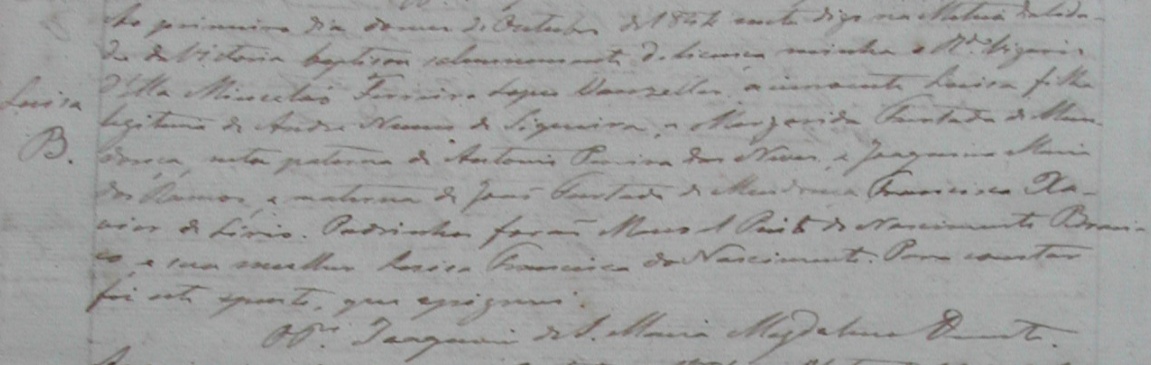 Ao primeiro dia do mes de Outubro de 1842 nesta digo na Matriz da Cida-
de da Victoria baptisou solemnemente de licença minha o R.do Vigario
d'Ella Misceláo Ferreira Lopes Wanzeller, a innocente Luisa filha
legitima de Andre Nunes de Siqueira, e Margarida Furtado de Men-
donça, neta paterna de Antonio Pereira das Neves, e Joaquina Maria
dos Ramos, e materna de José Furtado de Mendonça Francisca Xa-
vier de Padrinhos forão Manoel Pinto do Nascimento
e sua mulher Luisa Francisca do Nascimento. Para constar
foi este aposto, que assignei.
Joaquim de S. Maria Magdalena Duarte.
Luisa
B.